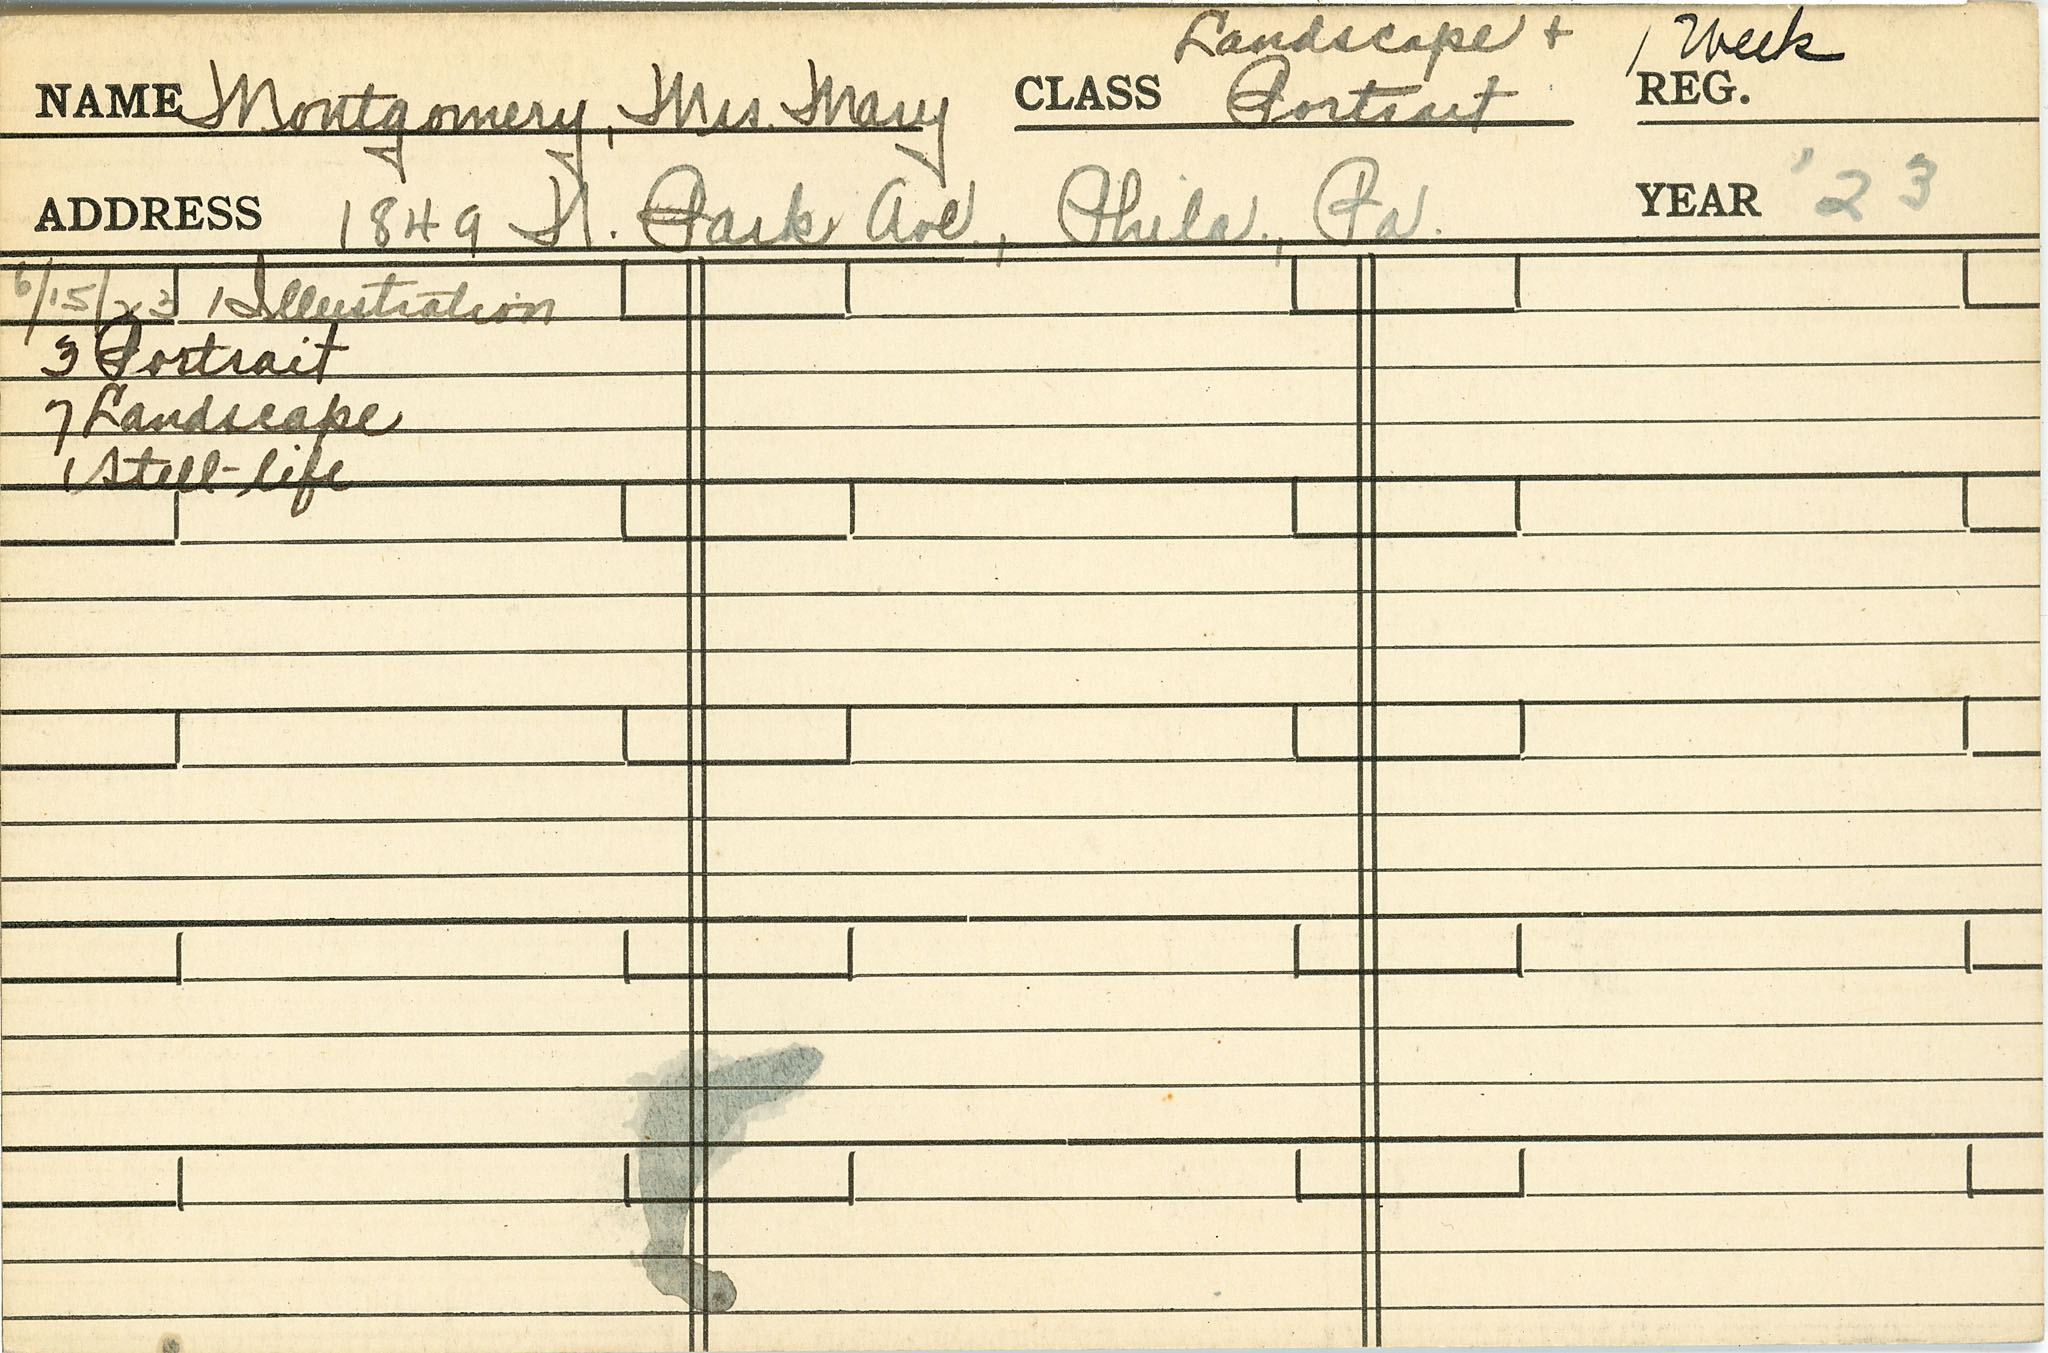 Landscape + 1 Week
NAME Montgomery, Mrs. Mary CLASS Portrait REG.
ADDRESS 1849 N. Park Ave., Phila., Pa. YEAR '23
6/15/23 1 Illustration
3 Portrait
7 Landscape
1 Still-life